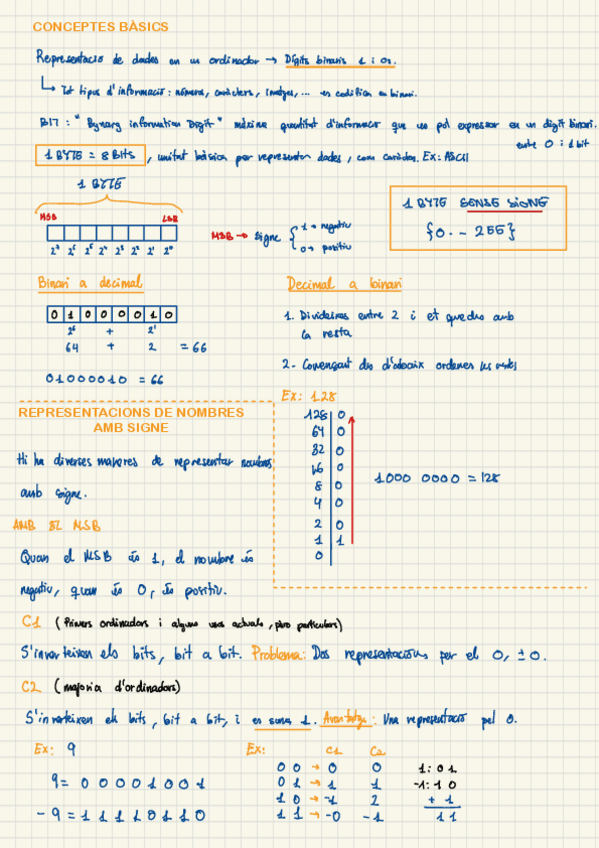 CONCEPTES BÀSICS
Representació de dades en un ordinador → Dígits binaris 1 i 0s.
↳ Tot tipus d'informació: números, caràcters, imatges, ... es codifica en binari.
BIT: "Bynary information Digit" màxima quantitat d'informació que es pot expressar en un dígit binari.
entre 0 i 1 bit
1 BYTE = 8 Bits, unitat bàsica per representar dades, com caràcters. Ex: ASCII
1 BYTE
MSB LSB
2⁷ 2⁶ 2⁵ 2⁴ 2³ 2² 2¹ 2⁰
MSB → Signe { 1 → negatiu
0 → positiu
1 BYTE SENSE SIGNE
{0 .. 255}
Binari a decimal
0 1 0 0 0 0 1 0
2⁶ + 2¹
64 + 2 = 66
01000010 = 66
Decimal a binari
1. Divideixes entre 2 i et quedes amb
la resta
2- Començant des d'abaix ordenes les restes
Ex: 128
128 0
64 0
32 0
16 0
8 0
4 0
2 0
1 1
0
1000 0000 = 128
REPRESENTACIONS DE NOMBRES
AMB SIGNE
Hi ha diverses maneres de representar nombres
amb signe.
AMB EL MSB
Quan el MSB és 1, el nombre és
negatiu, quan és 0, és positiu.
C1 (Primers ordinadors i alguns usos actuals, però particulars)
S'inverteixen els bits, bit a bit. Problema: Dos representacions per el 0, ±0.
C2 (majoria d'ordinadors)
S'inverteixen els bits, bit a bit, i es suma 1. Avantatge: Una representació pel 0.
Ex: 9
9 = 0 0 0 0 1 0 0 1
-9 = 1 1 1 1 0 1 1 0
Ex: C1 C2
0 0 → 0 0
0 1 → 1 1
1 0 → -1 2
1 1 → -0 -1
1: 0 1
-1: 1 0
+ 1
1 1